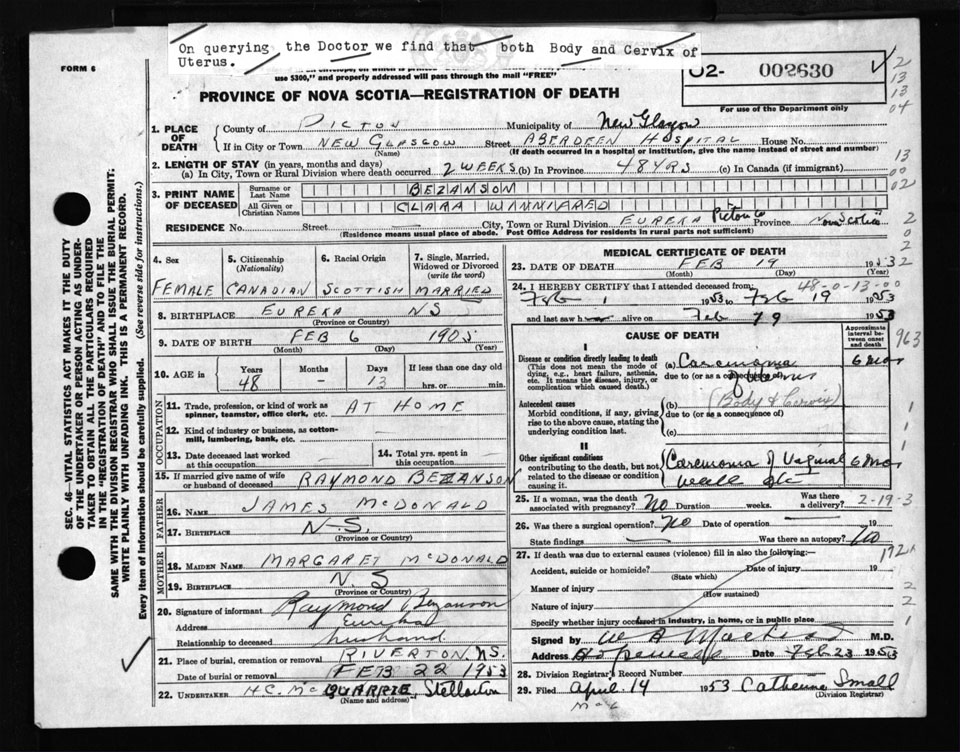 On querying the Doctor we find that both Body and Cervix of
Uterus.
FORM 6
use $300," and properly addressed will pass through the mail "FREE"
02- 002630
For use of the Department only
PROVINCE OF NOVA SCOTIA—REGISTRATION OF DEATH
2
13
13
04
13
00
02
2
0
2
1. PLACE OF DEATH
County of PICTOU Municipality of New Glasgow
If in City or Town NEW GLASGOW Street ABERDEEN HOSPITAL House No.
(Name) (If death occurred in a hospital or institution, give the name instead of street and number)
2. LENGTH OF STAY (in years, months and days)
(a) In City, Town or Rural Division where death occurred 2 WEEKS (b) In Province 48 YRS (c) In Canada (if immigrant)
3. PRINT NAME OF DECEASED
Surname or Last Name BEZANSON
All Given or Christian Names CLARA WINNIFRED
RESIDENCE No. Street City, Town or Rural Division EUREKA Pictou Co Province Nova Scotia
(Residence means usual place of abode. Post Office Address for residents in rural parts not sufficient)
SEC. 46—VITAL STATISTICS ACT MAKES IT THE DUTY
OF THE UNDERTAKER OR PERSON ACTING AS UNDER-
TAKER TO OBTAIN ALL THE PARTICULARS REQUIRED
IN THE "REGISTRATION OF DEATH" AND TO FILE THE
SAME WITH THE DIVISION REGISTRAR WHO SHALL ISSUE THE BURIAL PERMIT.
WRITE PLAINLY WITH UNFADING INK. THIS IS A PERMANENT RECORD.
Every item of information should be carefully supplied. (See reverse side for instructions.)
4. Sex
FEMALE
5. Citizenship (Nationality)
CANADIAN
6. Racial Origin
SCOTTISH
7. Single, Married, Widowed or Divorced (write the word)
MARRIED
8. BIRTHPLACE EUREKA NS
(Province or Country)
9. DATE OF BIRTH FEB 6 1905
(Month) (Day) (Year)
10. AGE in Years Months Days If less than one day old
48 — 13 hrs. or min.
OCCUPATION
11. Trade, profession, or kind of work as spinner, teamster, office clerk, etc. AT HOME
12. Kind of industry or business, as cotton-mill, lumbering, bank, etc. —
13. Date deceased last worked at this occupation —
14. Total yrs. spent in this occupation —
15. If married give name of wife or husband of deceased RAYMOND BEZANSON
FATHER
16. NAME JAMES McDONALD
17. BIRTHPLACE N.S.
(Province or Country)
MOTHER
18. MAIDEN NAME MARGARET McDONALD
19. BIRTHPLACE N.S
(Province or Country)
20. Signature of informant Raymond Bezanson
Address Eureka
Relationship to deceased husband
21. Place of burial, cremation or removal RIVERTON, NS.
Date of burial or removal FEB 22 1953
22. UNDERTAKER H.C. McQUARRIE, Stellarton
(Name and address)
MEDICAL CERTIFICATE OF DEATH
23. DATE OF DEATH FEB 19 1953
(Month) (Day) (Year)
2
48-0-13-00
24. I HEREBY CERTIFY that I attended deceased from
Feb 1 1953 to Feb 19 1953
and last saw h alive on Feb 19 1953
CAUSE OF DEATH
Approximate interval between onset and death
963
I
Disease or condition directly leading to death
(This does not mean the mode of dying, e.g., heart failure, asthenia, etc. It means the disease, injury, or complication which caused death.)
(a) Carcinoma 6 mos
due to (or as a consequence of)
of Uterus
(Body & Cervix)
Antecedent causes
Morbid conditions, if any, giving rise to the above cause, stating the underlying condition last.
(b)
due to (or as a consequence of)
(c)
1
1
II
Other significant conditions
contributing to the death, but not related to the disease or condition causing it.
Carcinoma of Vaginal 6 mos
wall etc
25. If a woman, was the death associated with pregnancy? No Duration weeks. Was there a delivery?
2-19-3
26. Was there a surgical operation? No Date of operation 19
State findings — Was there an autopsy? No
27. If death was due to external causes (violence) fill in also the following:—
Accident, suicide or homicide? Date of injury 19
(State which)
Manner of injury
(How sustained)
Nature of injury
Specify whether injury occurred in industry, in home, or in public place
2
2
1
Signed by M.D.
Address Hopewell Date Feb 23 1953
28. Division Registrar's Record Number
29. Filed April 14 1953 Catherine Small
(Division Registrar)